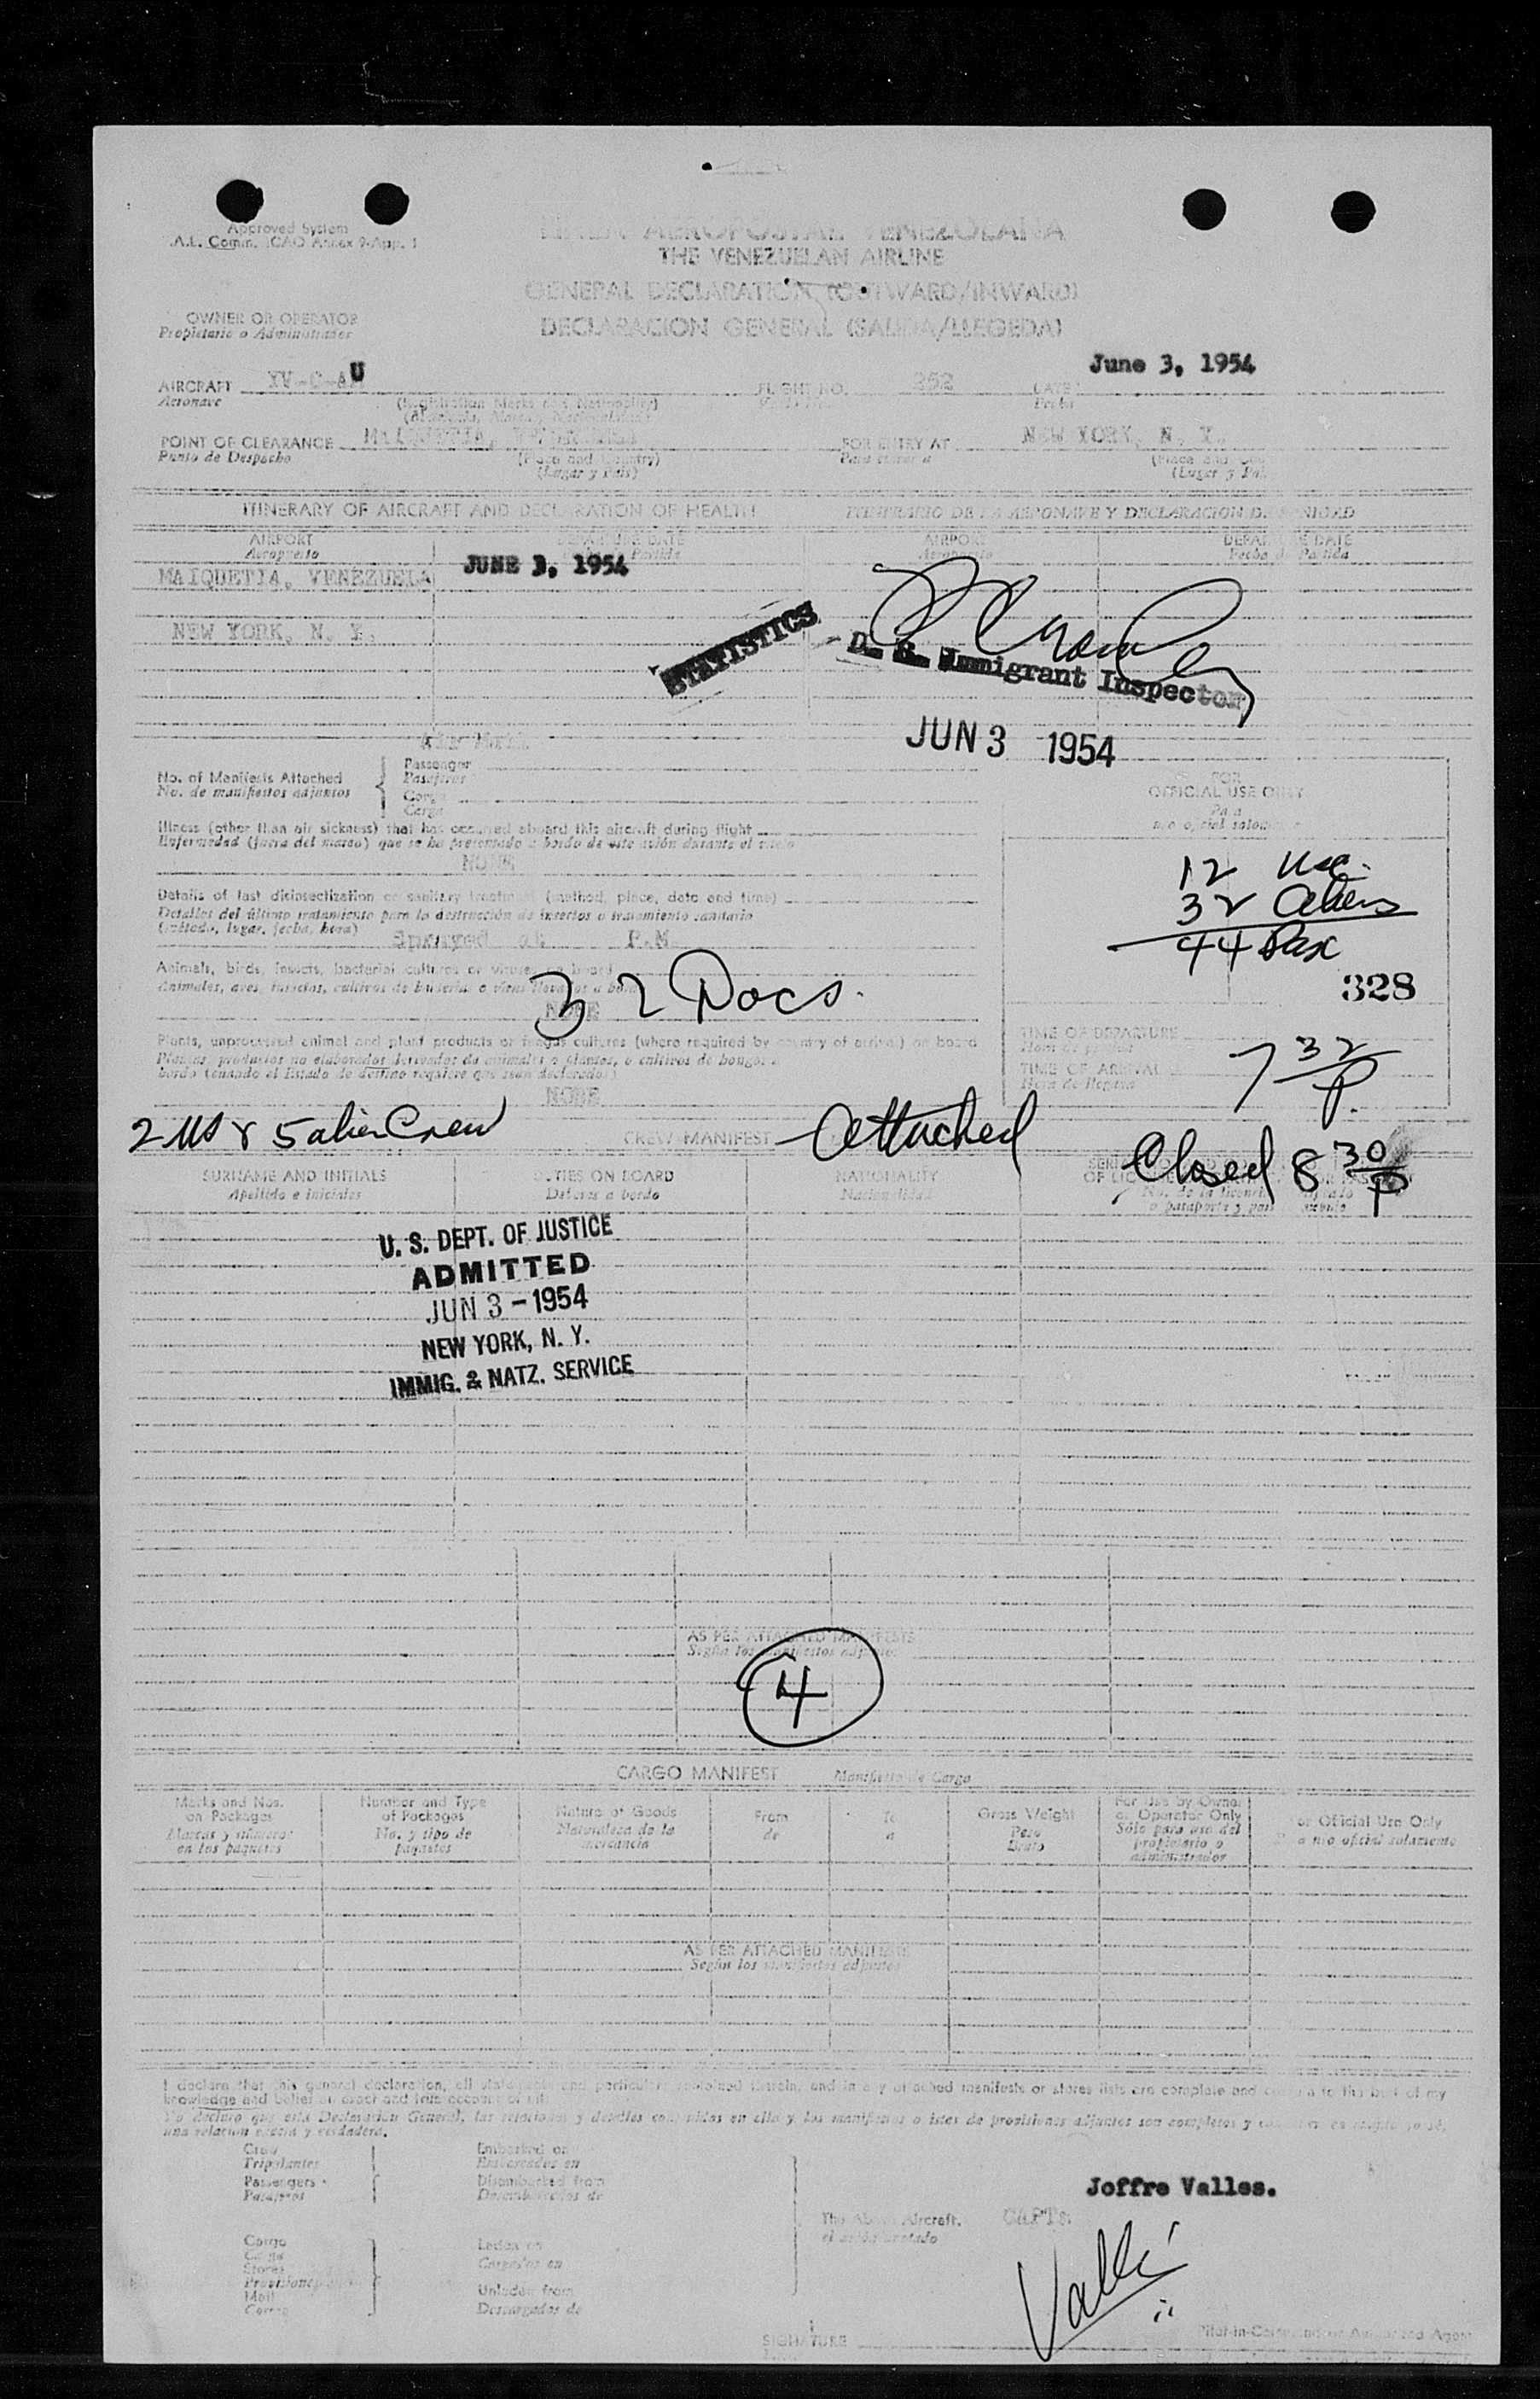 Approved System
A.L. Comm. ICAO Annex 9-App. 1
LINEA AEROPOSTAL VENEZOLANA
THE VENEZUELAN AIRLINE
GENERAL DECLARATION (OUTWARD/INWARD)
DECLARACION GENERAL (SALIDA/LLEGEDA)
OWNER OR OPERATOR
Propietario o Administrador
AIRCRAFT YV-C-AU FLIGHT NO. 252 DATE June 3, 1954
Aeronave Fecha
(Registration Marks and Nationality)
POINT OF CLEARANCE MAIQUETIA, VENEZUELA FOR ENTRY AT NEW YORK, N. Y.
Punto de Despacho (Place and Country) Para entrar a (Place and
(Lugar y País) (Lugar y Pa
ITINERARY OF AIRCRAFT AND DECLARATION OF HEALTH ITINERARIO DE LA AERONAVE Y DECLARACION DE SANIDAD
AIRPORT DEPARTURE DATE AIRPORT DEPARTURE DATE
Aeropuerto Partida Aeropuerto Fecha de Partida
MAIQUETIA, VENEZUELA JUNE 3, 1954
NEW YORK, N. Y.
STATISTICS
Immigrant Inspector
JUN 3 1954
Passenger
No. of Manifests Attached Pasajeros
No. de manifiestos adjuntos Cargo
Carga
FOR
OFFICIAL USE ONLY
Illness (other than air sickness) that has occurred aboard this aircraft during flight
Enfermedad (fuera del mareo) que se ha presentado a bordo de este avión durante el vuelo
NONE
12 usc.
32 Aliens
44 Pax
328
Details of last disinsectization or sanitary treatment (method, place, date and time)
Detalles del último tratamiento para la destrucción de insectos o tratamiento sanitario
(método, lugar, fecha, hora)
Sprayed at P.M.
Animals, birds, insects, bacterial cultures or viruses on board
32 Docs.
NONE
Plants, unprocessed animal and plant products or fungus cultures (where required by country of arrival) on board
Plantas, productos no elaborados derivados de animales o plantas, o cultivos de hongos a
bordo (cuando el Estado de destino requiere que sean declarados)
NONE
TIME OF DEPARTURE
TIME OF ARRIVAL
Hora de llegada
7 32/P.
2 US & 5 alien Crew CREW MANIFEST Attached
Closed 8 30/P
SURNAME AND INITIALS DUTIES ON BOARD NATIONALITY
Apellido e iniciales Deberes a bordo Nacionalidad
U. S. DEPT. OF JUSTICE
ADMITTED
JUN 3 - 1954
NEW YORK, N. Y.
IMMIG. & NATZ. SERVICE
AS PER ATTACHED MANIFESTS
Según los manifiestos adjuntos
4
CARGO MANIFEST Manifiesto de Carga
Marks and Nos. on Packages
Marcas y números en los paquetes
Number and Type of Packages
No. y tipo de paquetes
Nature of Goods
Naturaleza de la mercancia
From
de
To
a
Gross Weight
Peso Bruto
For Use by Owner or Operator Only
Sólo para uso del propietario o administrador
For Official Use Only
Para uso oficial solamente
AS PER ATTACHED MANIFESTS
Según los manifiestos adjuntos
I declare that this general declaration, all statements and particulars contained therein, and in any attached manifests or stores lists are complete and to the best of my
knowledge and belief
Yo declaro que esta Declaracion General, las relaciones y detalles contenidos en ella y los manifiestos o listas de provisiones adjuntos son completos y
una relación exacta y verdadera.
Crew Embarked on
Tripulantes Embarcados en
Passengers Disembarked from
Pasajeros Desembarcados de
Joffre Valles.
The Above Aircraft. CAPT.
el avión anotado
Cargo Laden on
Carga Cargados en
Stores
Provisiones
Mail Unladen from
Correo Descargados de
Valles
SIGNATURE
Pilot-in-Command or Authorized Agent